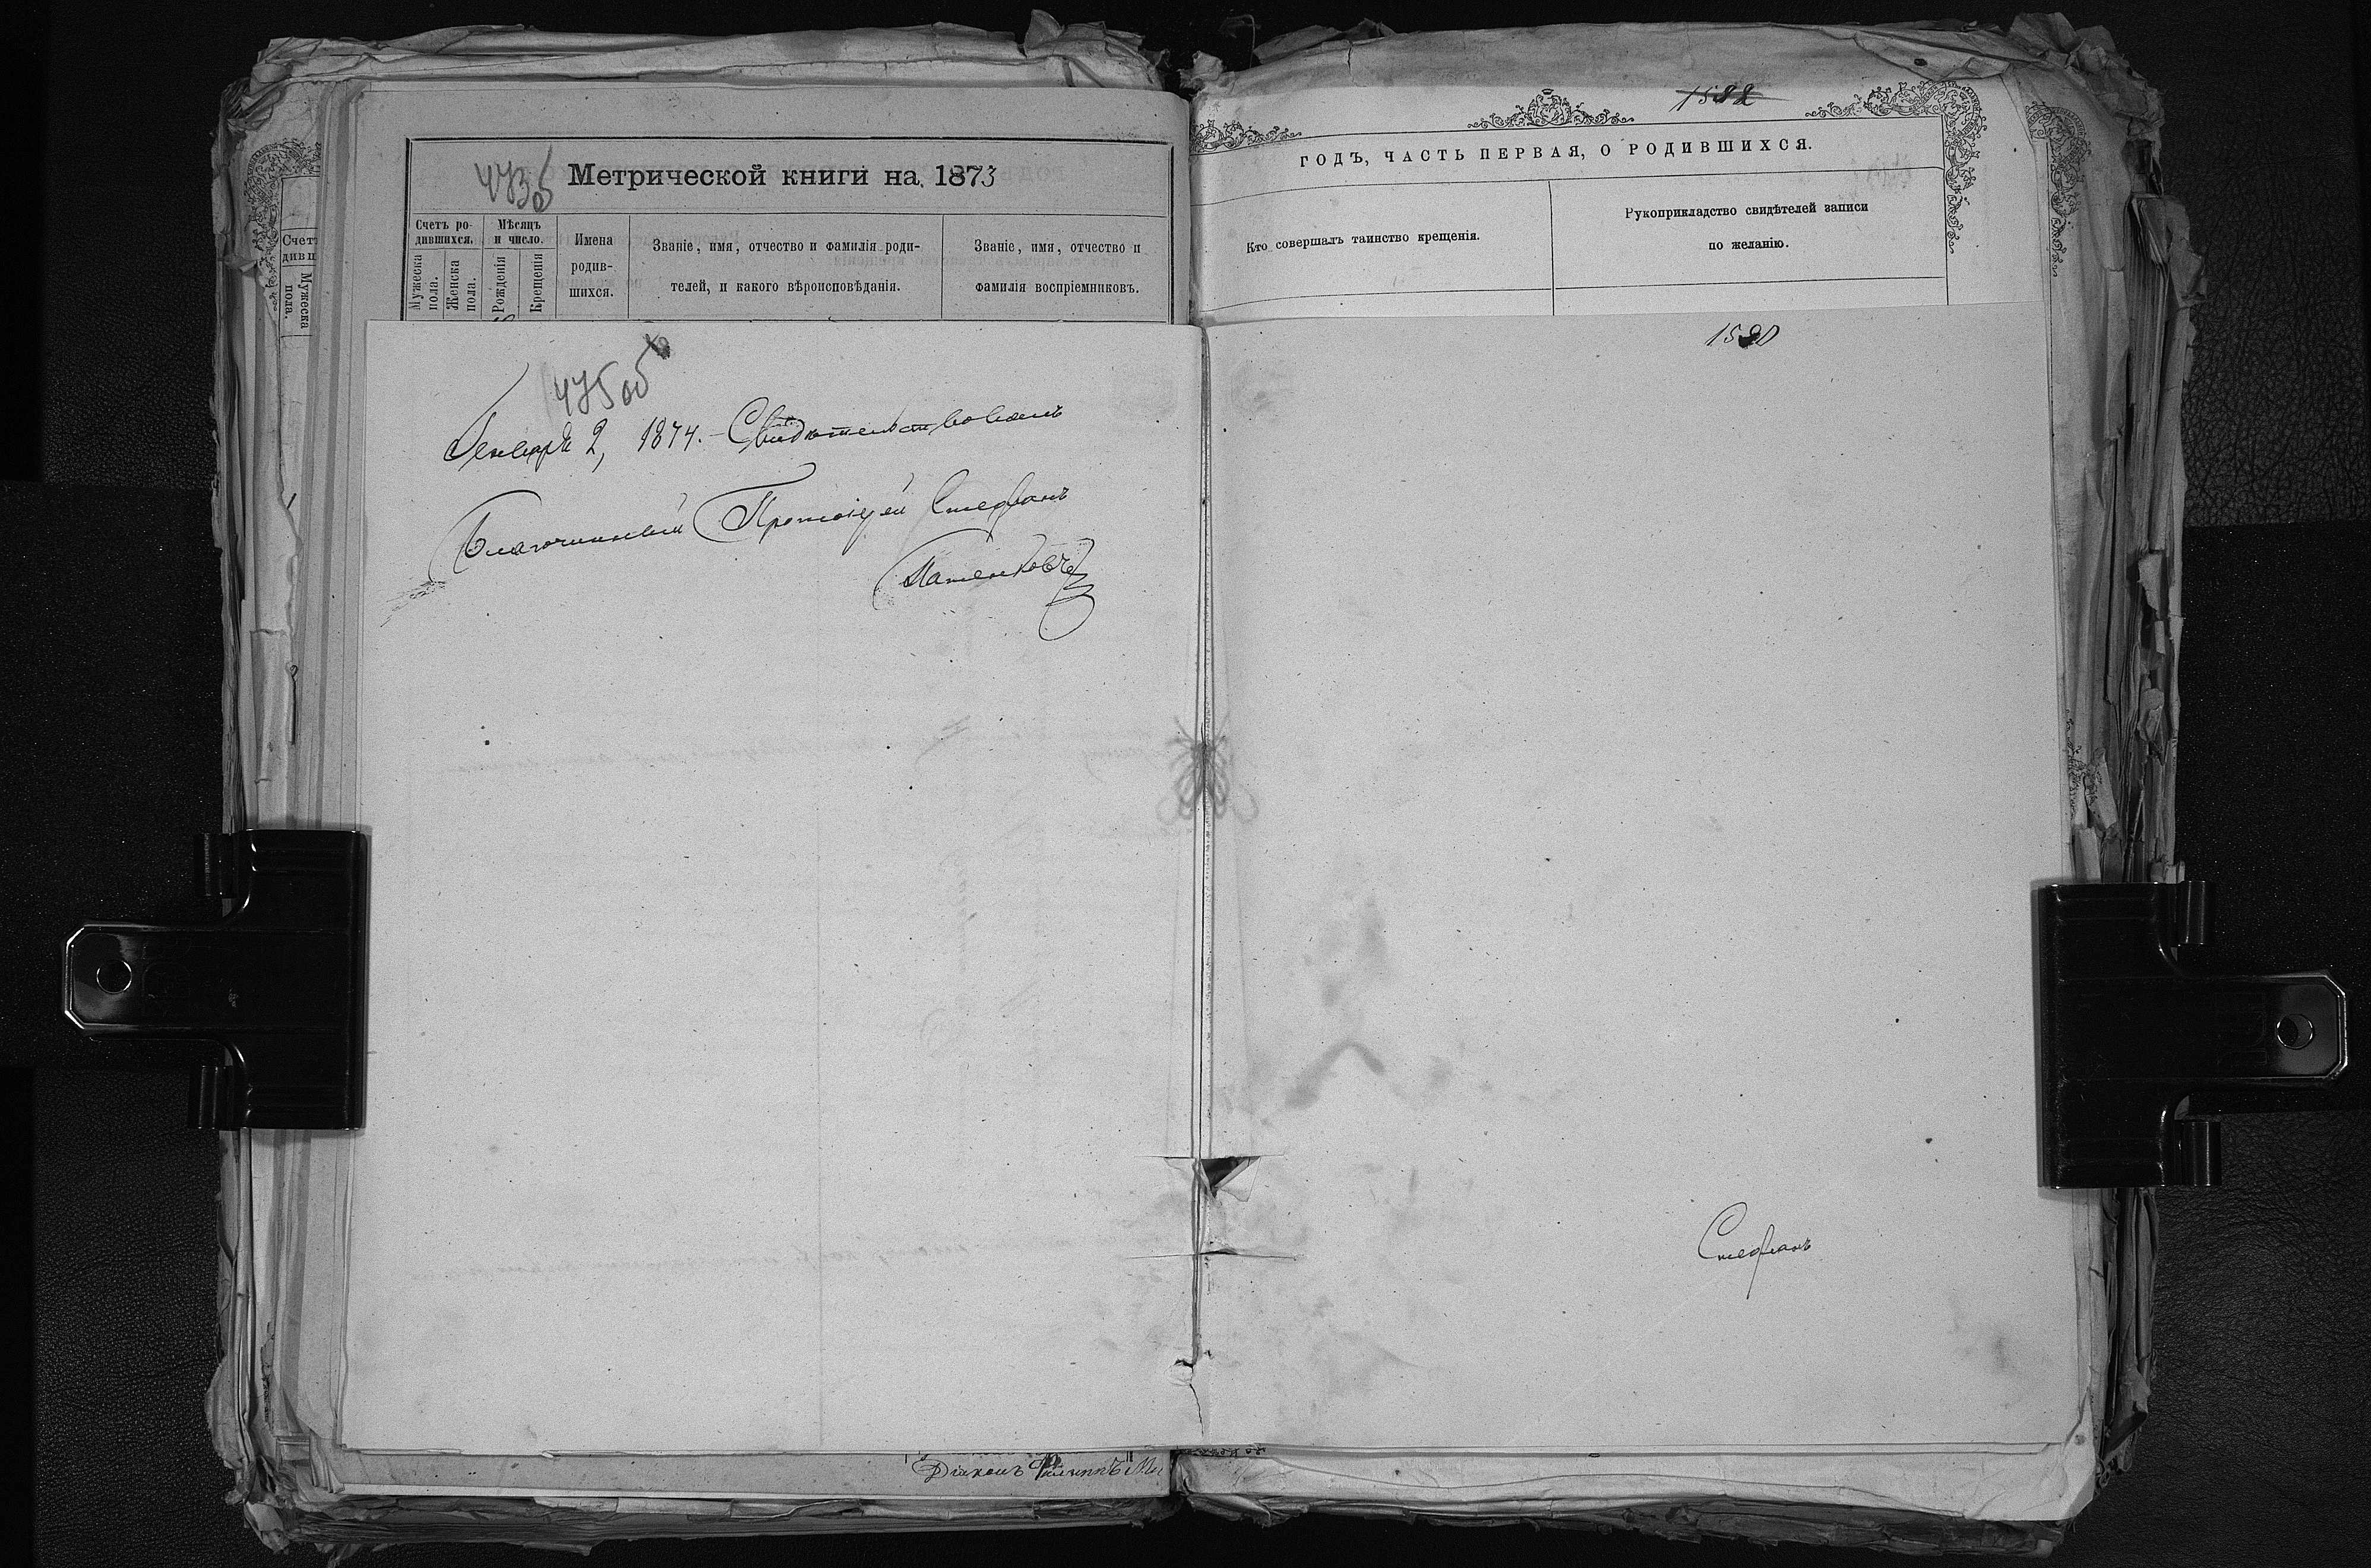 473об
Метрической книги на 1873
Счетъ ро-
дившихся.
Мѣсяцъ
и число.
Мужеска
пола.
Женска
пола.
Рожденія
Крещенія
Имена
родив-
шихся.
Званіе, имя, отчество и фамилія роди-
телей, и какого вѣроисповѣданія.
Званіе, имя, отчество и
фамилія воспріемниковъ.
Счет
див
Мужеска
пола.
475об
Генваря 2, 1874. – Свидѣтельствовалъ
Благочинный Протоіерей Стефанъ
Діаконъ Филиппъ
ГОДЪ, ЧАСТЬ ПЕРВАЯ, О РОДИВШИХСЯ.
Кто совершалъ таинство крещенія.
Рукоприкладство свидѣтелей записи
по желанію.
1590
Стефанъ